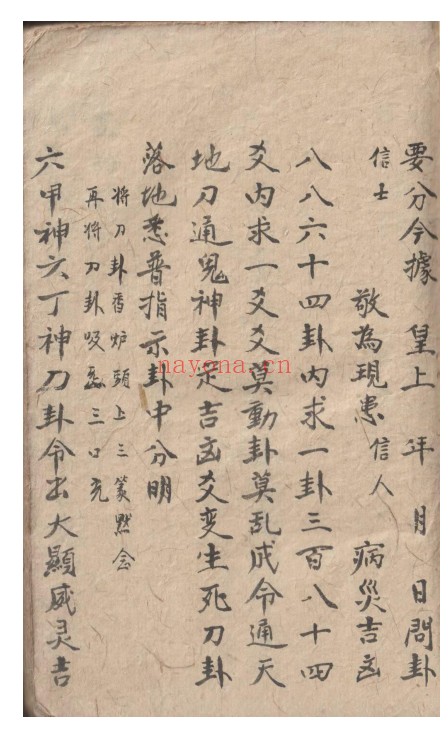 要分今據 皇上 年 月 日問卦
信士 敬為現患信人 病災吉凶
八八六十四卦内求一卦三百八十四
爻内求一爻爻莫動卦莫乱成令通天
地刀通鬼神卦定吉凶爻变生死刀卦
落地悉普指示卦中分明
将刀卦香炉頭上三篆黙念
再将刀卦吸三口先
六甲神六丁神刀卦令出大顯威灵吉
nayona.cn